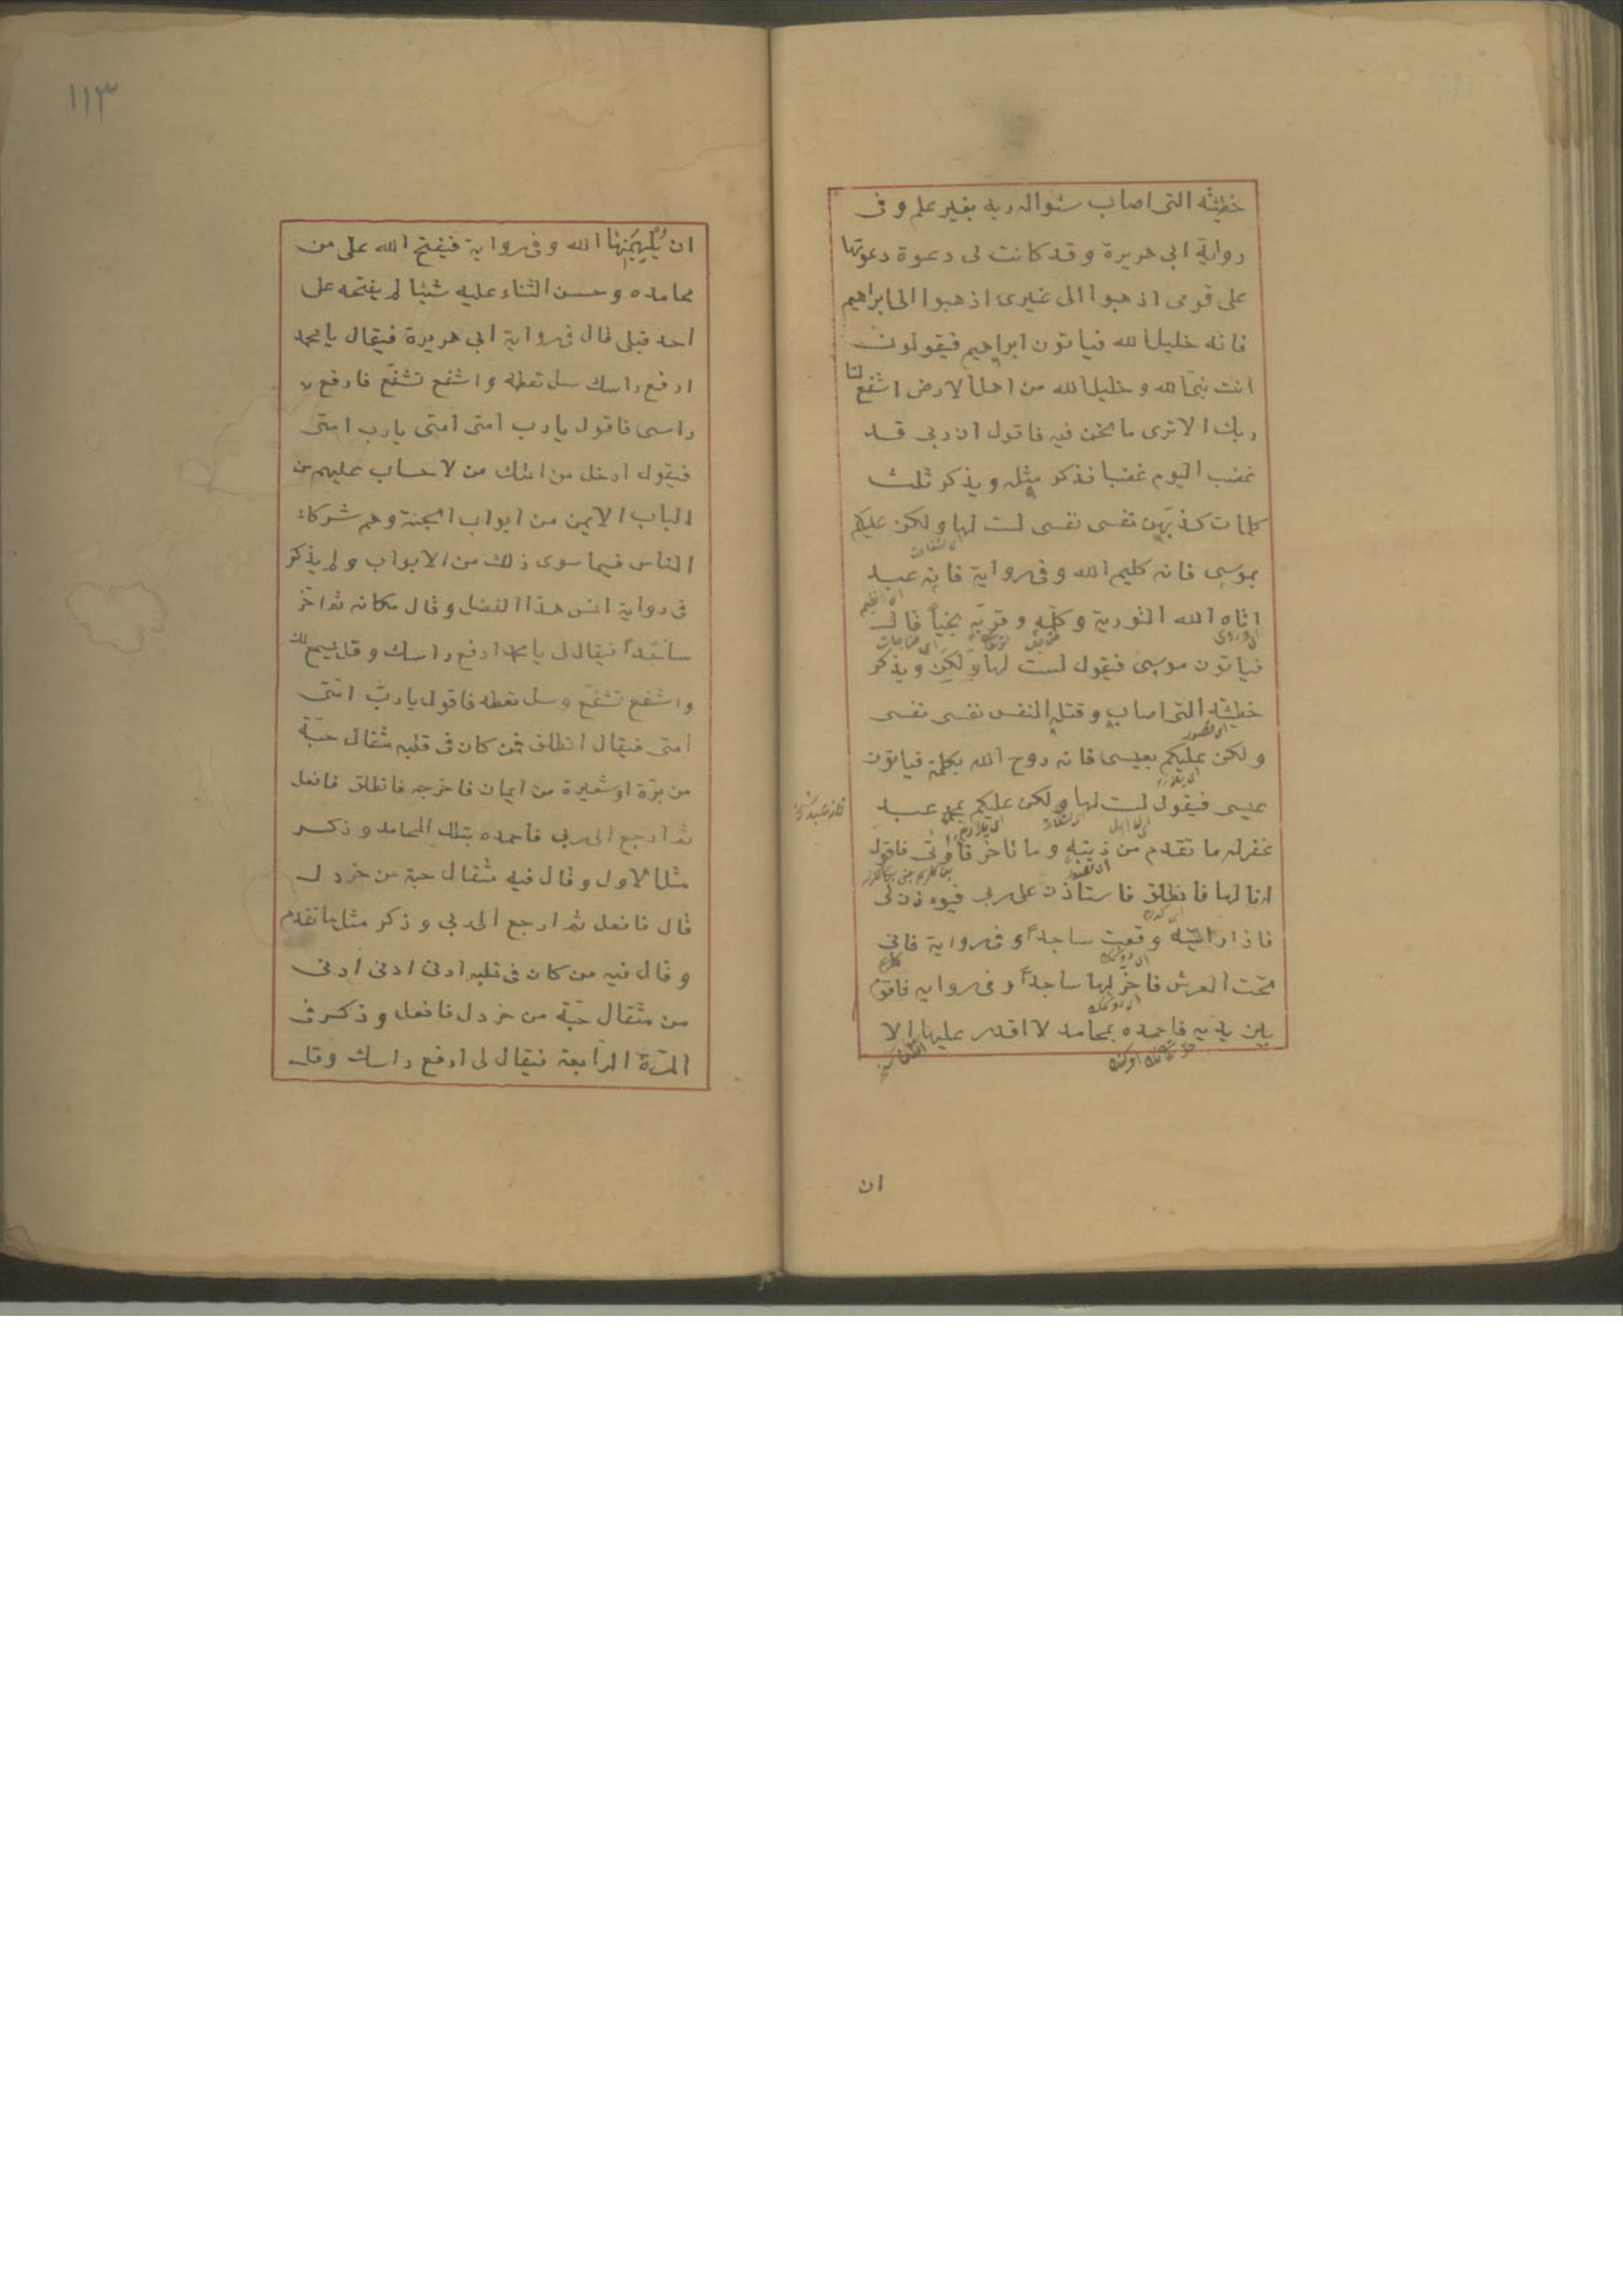 خطيئته التى اصاب سئواله ربه بغير علم وفى
رواية ابى هريرة وقد كانت لى دعوة دعوتها
على قومى اذهبوا الى غيرى اذهبوا الى ابراهيم
فانه خليل الله فياتون ابراهيم فيقولون
انت نبى الله وخليل الله من اهل الارض اشفع لنا
ربك الا ترى ما نحن فيه فاقول ان ربى قد
غضب اليوم غضبا فذكر مثله ويذكر ثلث
كلمات كذبهن نفسى نفسى لست لها ولكن عليكم
بموسى فانه كليم الله وفى رواية فانه عبد
اتاه الله التورية وكلمه وقربه نجياً قال
فياتون موسى فيقول لست لها ولكن ويذكر
خطيئته التى اصاب وقتله النفس نفسى نفسى
ولكن عليكم بعيسى فانه روح الله بكلمة فياتون
عيسى فيقول لست لها ولكن عليكم بمحمد عبد
غفرله ما تقدم من ذنبه وما تاخر فاوتى فاقول
انا لها فانطلق فاستاذن على ربى فيوءذن لى
فاذا رائيته وقعت ساجداً وفى رواية فاتى
تحت العرش فاخر لها ساجداً وفى رواية فاقوم
بين يديه فاحمده بمحامد لا اقدر عليها الا
ان
١١٣
ان يُلهِمَنيها الله وفى رواية فيفتح الله على من
محامده وحسن الثناء عليه شيئا لم يفتحه على
احد قبلى قال فى رواية ابى هريرة فيقال يا محمد
ارفع راسك سل تعطه واشفع تشفّع فارفع
راسى فاقول يا رب امتى امتى يا رب امتى
فيقول ادخل من امتك من لا حساب عليهم من
الباب الايمن من ابواب الجنة وهم شركاء
الناس فيما سوى ذلك من الابواب ولم يذكر
فى رواية انس هذا الفضل وقال مكانه ثم اخر
ساجداً فيقال لى يا محمد ارفع راسك وقل يسمع لك
واشفع تشفّع وسل تعطه فاقول يا ربّ امتى
امتى فيقال انطلق فمن كان فى قلبه مثقال حبّة
من برّة او شعيرة من ايمان فاخرجه فانطلق فافعل
ثم ارجع الى ربى فاحمده بتلك المحامد وذكر
مثل الاول وقال فيه مثقال حبة من خردل
قال فافعل ثم ارجع الى ربى وذكر مثل ما تقدم
وقال فيه من كان فى قلبه ادنى ادنى ادنى
من مثقال حبّة من خردل فافعل وذكر فى
المرّة الرابعة فيقال لى ارفع راسك وقل